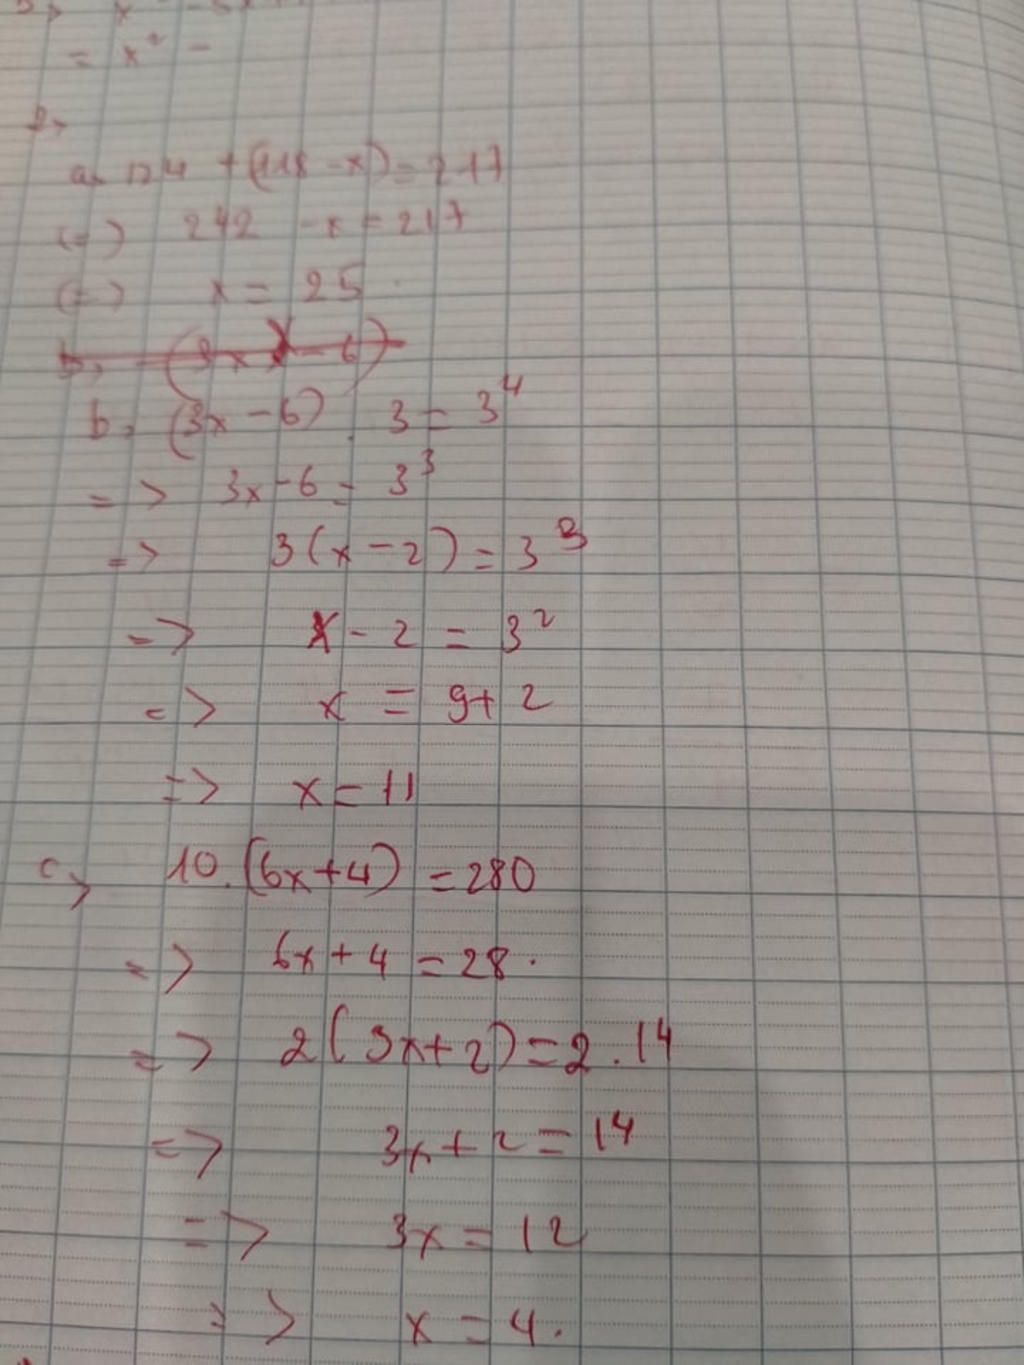 = x² -
2,
a, 124 + (118 - x) = 217
(=) 242 - x = 217
(=) x = 25
b, (3x - 6)
b, (3x - 6) . 3 = 3⁴
=> 3x - 6 = 3³
=> 3(x - 2) = 3³
=> x - 2 = 3²
=> x = 9 + 2
=> x = 11
c, 10.(6x+4) = 280
=> 6x + 4 = 28.
=> 2(3x+2) = 2.14
=> 3x + 2 = 14
=> 3x = 12
=> x = 4.